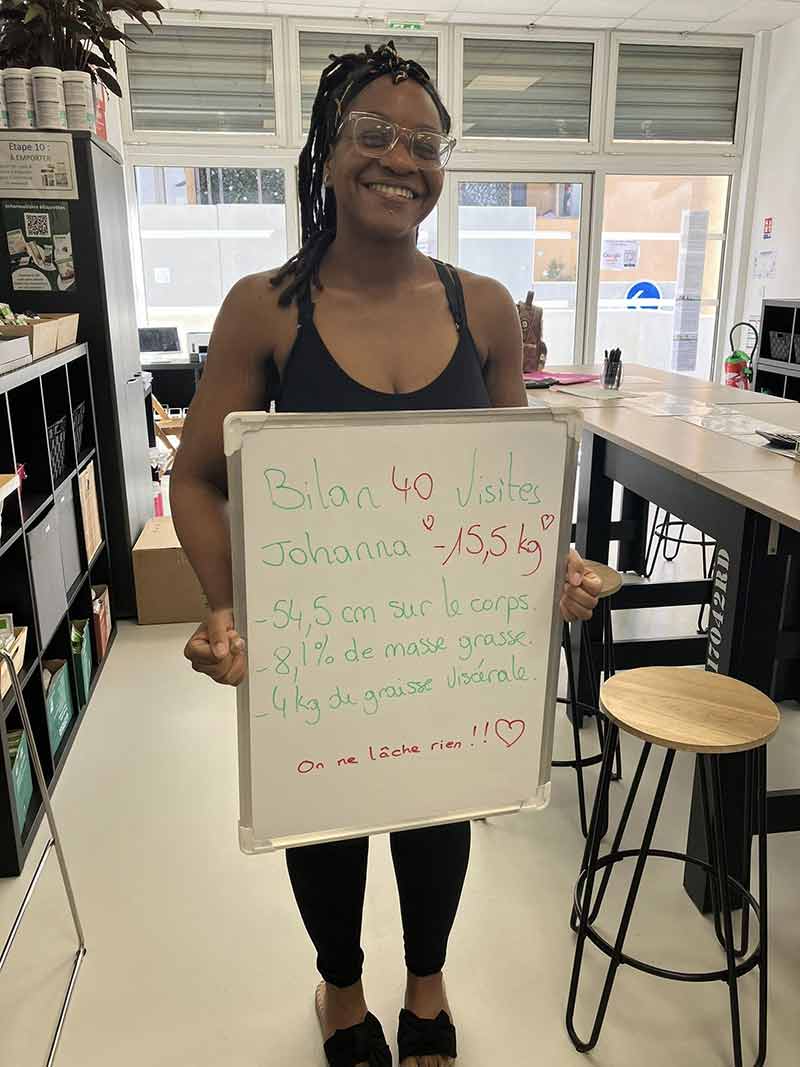 Etape 10 :
À EMPORTER
Bilan 40 Visites
Johanna -15,5 kg
-54,5 cm sur le corps.
-8,1% de masse grasse.
-4 kg de graisse viscérale.
On ne lâche rien !!
17042RD